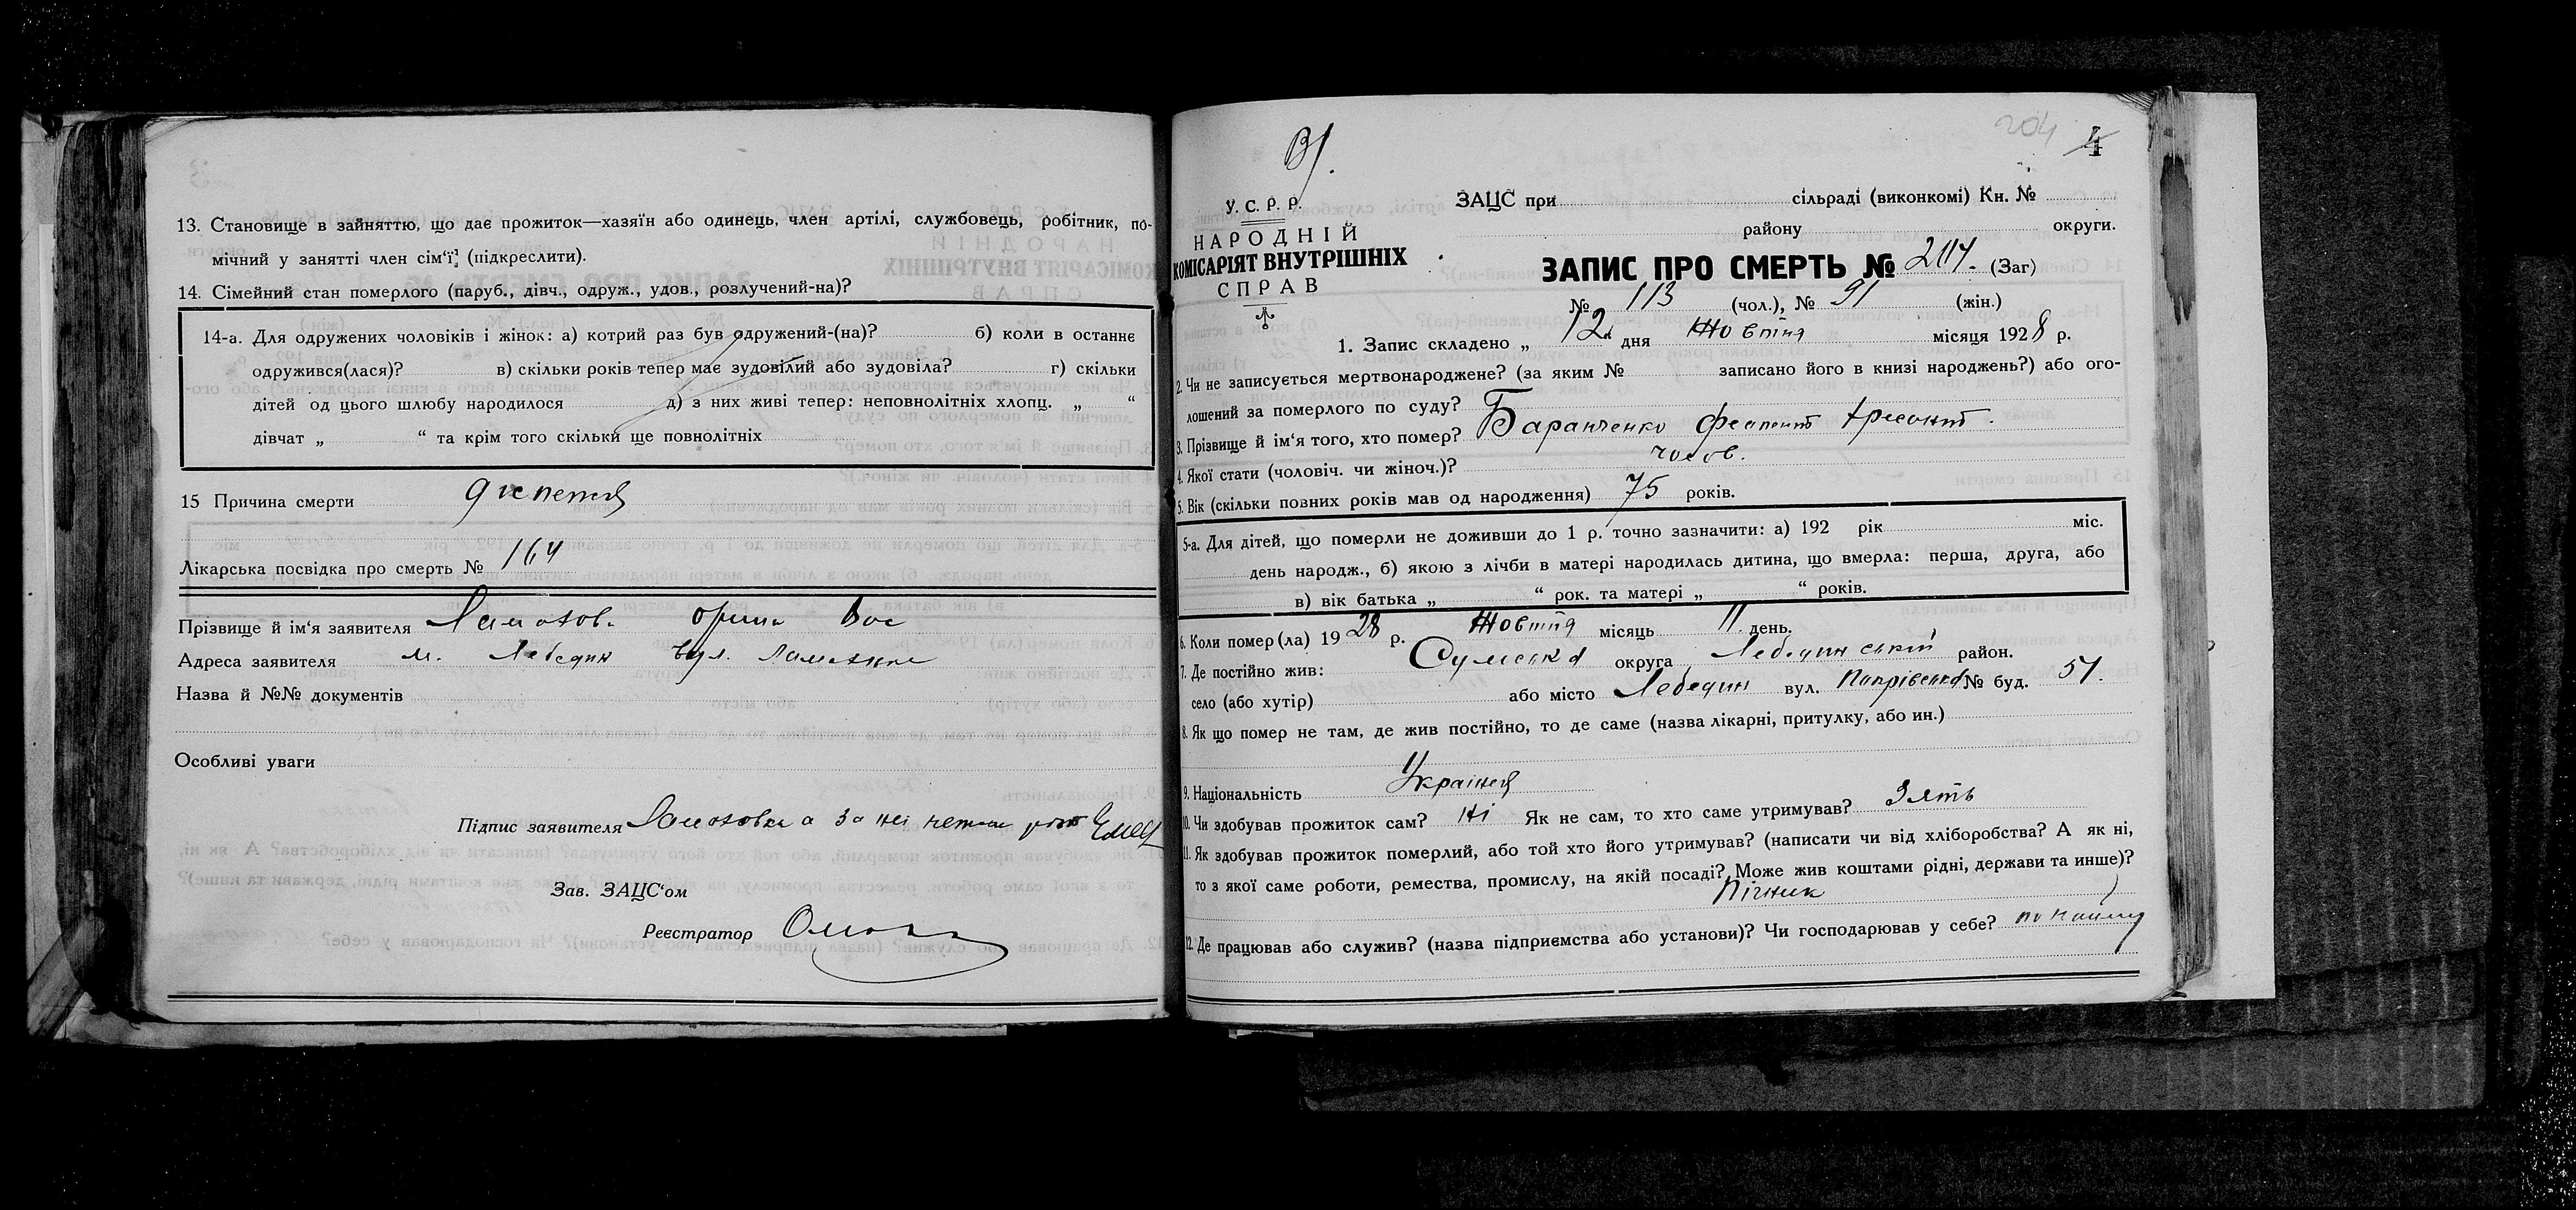 13. Становище в зайняттю, що дає прожиток—хазяїн або одинець, член артілі, службовець, робітник, по-
мічний у занятті член сім'ї (підкреслити).
14. Сімейний стан померлого (паруб., дівч., одруж., удов., розлучений-на)?
14-а. Для одружених чоловіків і жінок: а) котрий раз був одружений-(на)? б) коли в останнє
одружився(лася)? в) скільки років тепер має зудовілий або зудовіла? г) скільки
дітей од цього шлюбу народилося д) з них живі тепер: неповнолітніх хлопц. „ “
дівчат „ “ та крім того скільки ще повнолітніх
15 Причина смерти
Лікарська посвідка про смерть № 164
Прізвище й ім'я заявителя
Адреса заявителя м. Лебедин вул.
Назва й №№ документів
Особливі уваги
Підпис заявителя
Зав. ЗАЦС'ом
Реєстратор
204
4
У. С. Р. Р.
НАРОДНІЙ
КОМІСАРІЯТ ВНУТРІШНІХ
СПРАВ
ЗАЦС при сільраді (виконкомі) Кн. №
району округи.
ЗАПИС ПРО СМЕРТЬ № 204. (Заг)
№ 113 (чол.), № 91 (жін.)
1. Запис складено „ 12 “ дня Жовтня місяця 1928 р.
2. Чи не записується мертвонароджене? (за яким № записано його в книзі народжень?) або ого-
лошений за померлого по суду?
3. Прізвище й ім'я того, хто помер? Баранченко
4. Якої стати (чоловіч. чи жіноч.)? чолов.
5. Вік (скільки повних років мав од народження) 75 років.
5-а. Для дітей, що померли не доживши до 1 р. точно зазначити: а) 192 рік міс.
день народж., б) якою з лічби в матері народилась дитина, що вмерла: перша, друга, або
в) вік батька „ “ рок. та матері „ “ років.
6. Коли помер(ла) 1928 р. Жовтня місяць 11 день.
7. Де постійно жив: Сумська округа Лебединський район.
село (або хутір) або місто Лебедин вул. № буд. 51.
8. Як що помер не там, де жив постійно, то де саме (назва лікарні, притулку, або ин.)
9. Національність Українец
10. Чи здобував прожиток сам? Ні Як не сам, то хто саме утримував? Зять
11. Як здобував прожиток померлий, або той хто його утримував? (написати чи від хліборобства? А як ні,
то з якої саме роботи, ремества, промислу, на якій посаді? Може жив коштами рідні, держави та инше)?
Пічник
12. Де працював або служив? (назва підприємства або установи)? Чи господарював у себе? по найму